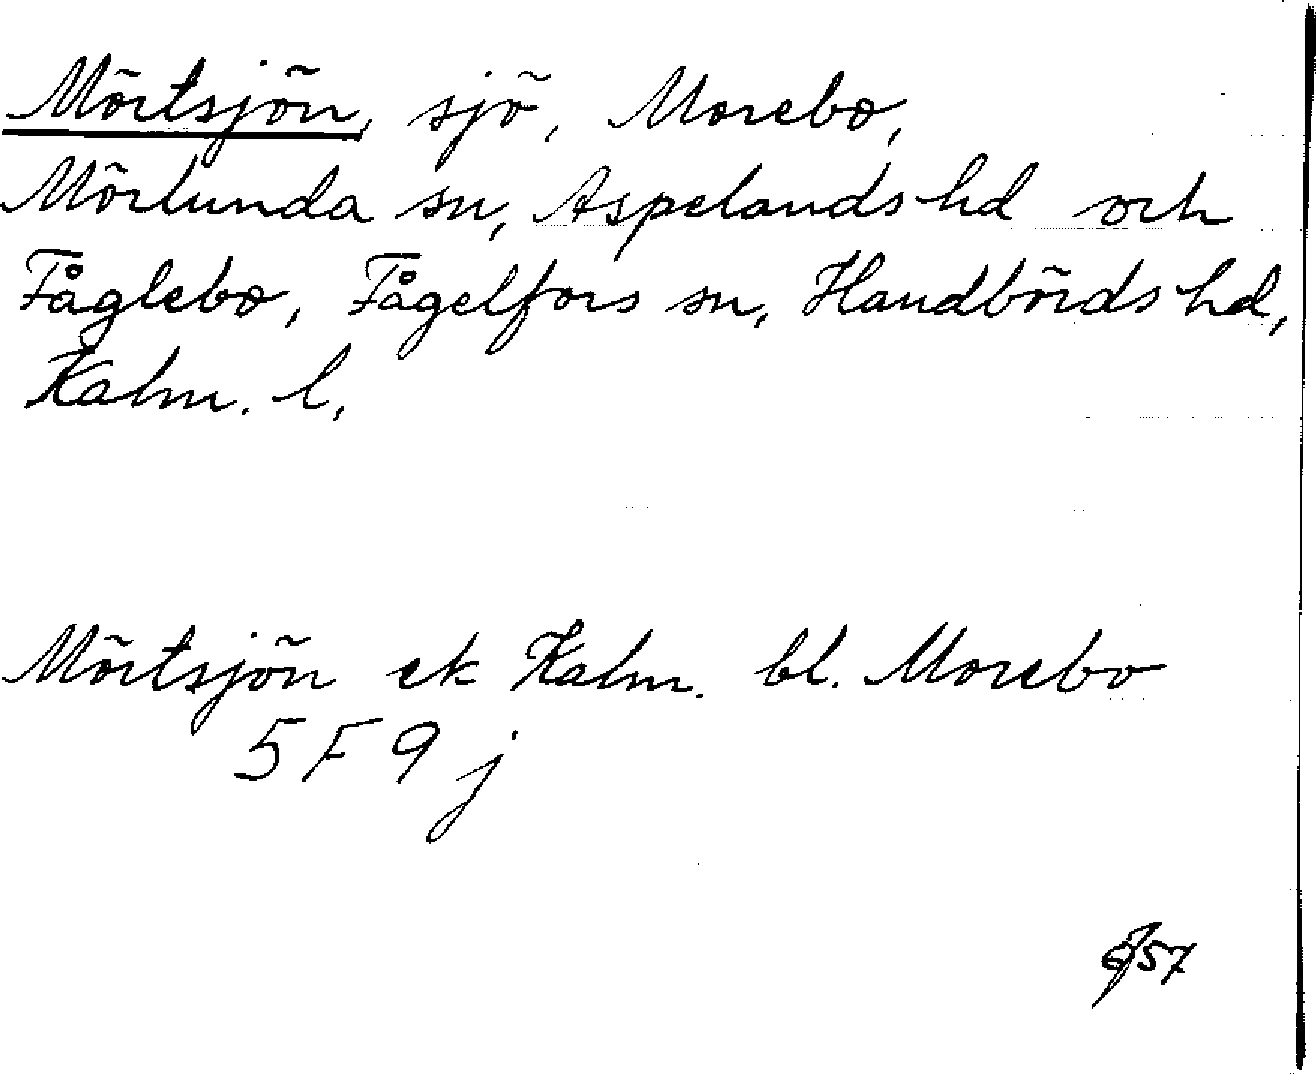 Mörtsjön, sjö, Morebo,
Mörlunda sn, Aspelands hd och
Fåglebo, Fågelfors sn, Handbörds hd,
Kalm. l,
Mörtsjön ek Kalm. bl. Morebo
5 F 9 j
57